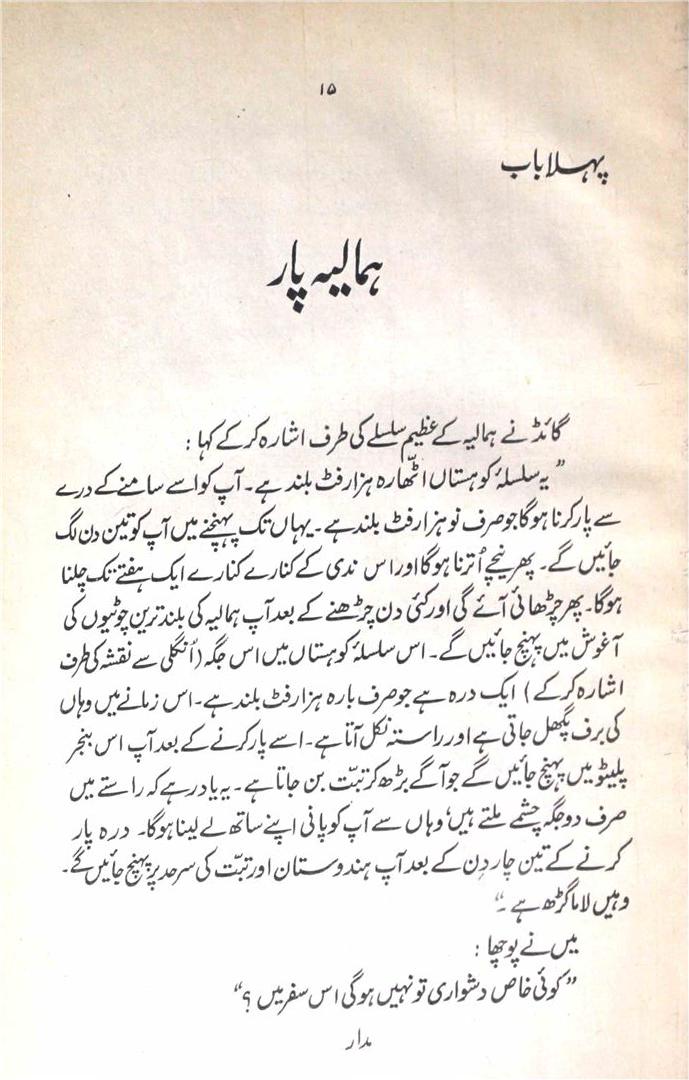 ۱۵
پہلا باب
ہمالیہ پار
گائڈ نے ہمالیہ کے عظیم سلسلے کی طرف اشارہ کر کے کہا :
”یہ سلسلۂ کوہستاں اٹھّارہ ہزار فٹ بلند ہے۔ آپ کو اسے سامنے کے درے
سے پار کرنا ہوگا جو صرف نو ہزار فٹ بلند ہے۔ یہاں تک پہنچنے میں آپ کو تین دن لگ
جائیں گے۔ پھر نیچے اُترنا ہوگا اور اس ندی کے کنارے کنارے ایک ہفتے تک چلنا
ہوگا۔ پھر چڑھائی آئے گی اور کئی دن چڑھنے کے بعد آپ ہمالیہ کی بلند ترین چوٹیوں کی
آغوش میں پہنچ جائیں گے۔ اس سلسلۂ کوہستاں میں اس جگہ (اُنگلی سے نقشہ کی طرف
اشارہ کر کے) ایک درہ ہے جو صرف بارہ ہزار فٹ بلند ہے۔ اس زمانے میں وہاں
کی برف پگھل جاتی ہے اور راستہ نکل آتا ہے۔ اسے پار کرنے کے بعد آپ اس بنجر
پلیٹو میں پہنچ جائیں گے جو آگے بڑھ کر تبّت بن جاتا ہے۔ یہ یاد رہے کہ راستے میں
صرف دو جگہ چشمے ملتے ہیں‘ وہاں سے آپ کو پانی اپنے ساتھ لے لینا ہوگا۔ درہ پار
کرنے کے تین چار دِن کے بعد آپ ہندوستان اور تبّت کی سرحد پر پہنچ جائیں گے۔
وہیں لاما گڑھ ہے ۔“
میں نے پوچھا :
”کوئی خاص دشواری تو نہیں ہوگی اس سفر میں ؟“
مدار